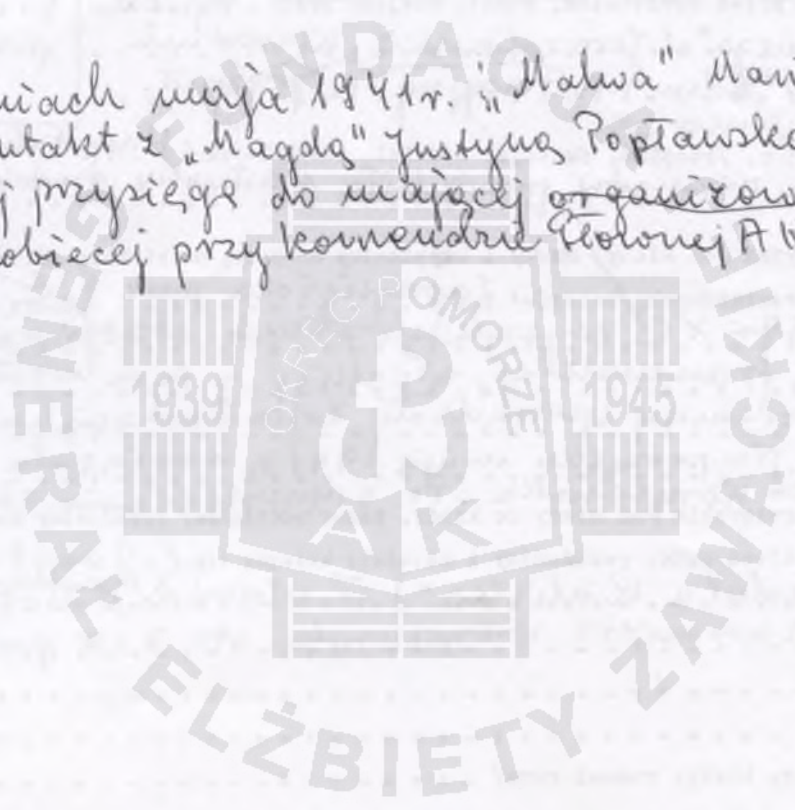 niach maja 1941r. i „Malwa" Mari
ntakt z „Magdą" Justyną Popławską
j przysięgę do mającej organizow
obiecej przy komendzie Głównej AK
FUNDACJA GENERAŁ ELŻBIETY ZAWACKIEJ
OKRĘG POMORZE
1939
1945
AK